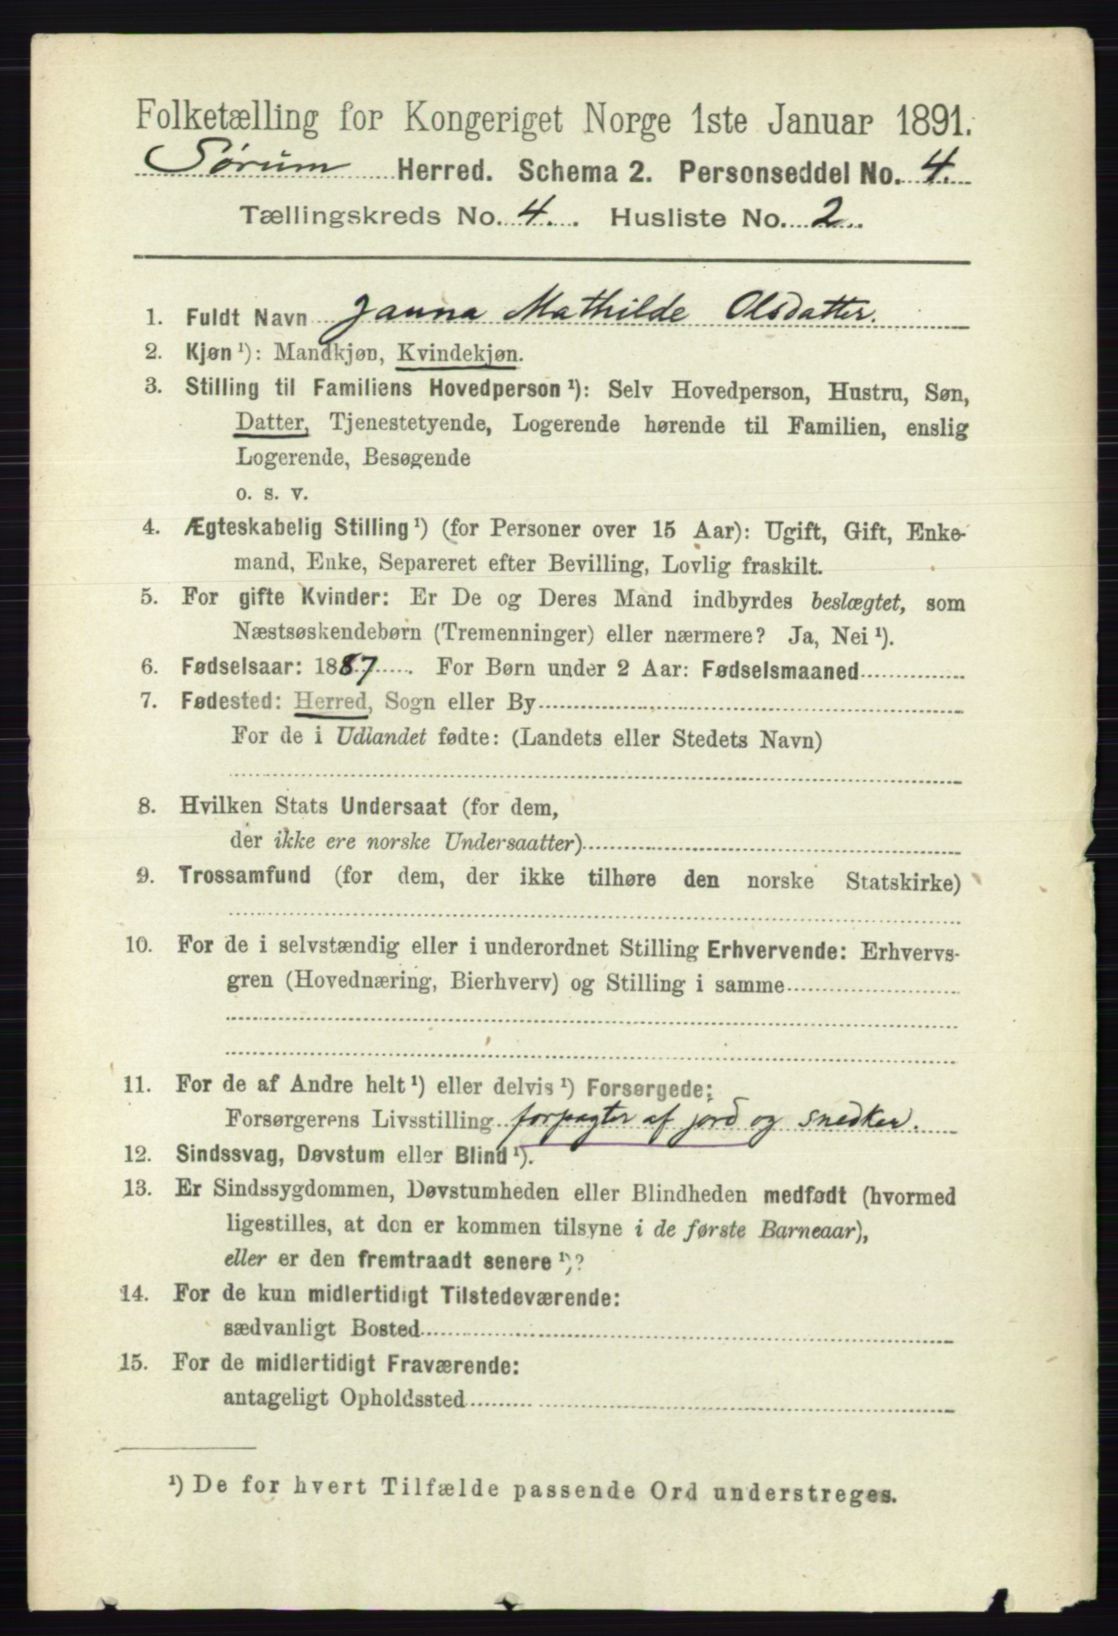 Folketælling for Kongeriget Norge 1ste Januar 1891.
Sørum Herred. Schema 2. Personseddel No. 4.
Tællingskreds No. 4. Husliste No. 2.
1. Fuldt Navn Janna Mathilde Olsdatter.
2. Kjøn ¹): Mandkjøn, Kvindekjøn.
3. Stilling til Familiens Hovedperson ¹): Selv Hovedperson, Hustru, Søn,
Datter, Tjenestetyende, Logerende hørende til Familien, enslig
Logerende, Besøgende
o. s. v.
4. Ægteskabelig Stilling ¹) (for Personer over 15 Aar): Ugift, Gift, Enke-
mand, Enke, Separeret efter Bevilling, Lovlig fraskilt.
5. For gifte Kvinder: Er De og Deres Mand indbyrdes beslægtet, som
Næstsøskendebørn (Tremenninger) eller nærmere? Ja, Nei ¹).
6. Fødselsaar: 1887. For Børn under 2 Aar: Fødselsmaaned
7. Fødested: Herred, Sogn eller By
For de i Udlandet fødte: (Landets eller Stedets Navn)
8. Hvilken Stats Undersaat (for dem,
der ikke ere norske Undersaatter)
9. Trossamfund (for dem, der ikke tilhøre den norske Statskirke)
10. For de i selvstændig eller i underordnet Stilling Erhvervende: Erhvervs-
gren (Hovednæring, Bierhverv) og Stilling i samme
11. For de af Andre helt ¹) eller delvis ¹) Forsørgede:
Forsørgerens Livsstilling forpagter af jord og snedker.
12. Sindssvag, Døvstum eller Blind ¹).
13. Er Sindssygdommen, Døvstumheden eller Blindheden medfødt (hvormed
ligestilles, at den er kommen tilsyne i de første Barneaar),
eller er den fremtraadt senere ¹)?
14. For de kun midlertidigt Tilstedeværende:
sædvanligt Bosted
15. For de midlertidigt Fraværende:
antageligt Opholdssted
¹) De for hvert Tilfælde passende Ord understreges.